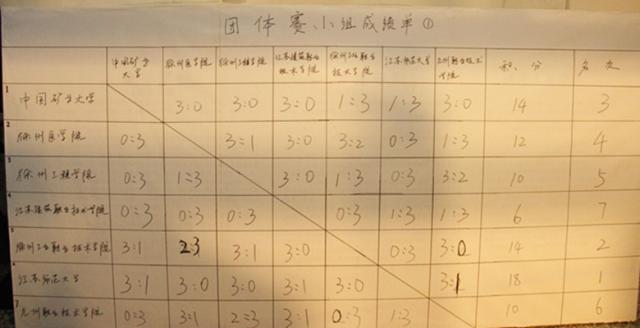 团体赛小组成绩单①
中国矿业大学 徐州医学院 徐州工程学院 江苏建筑职业技术学院 徐州工业职业技术学院 江苏师范大学 九州职业技术学院 积分 名次
1 中国矿业大学 3:0 3:0 3:0 1:3 1:3 3:0 14 3
2 徐州医学院 0:3 3:1 3:0 3:2 0:3 1:3 12 4
3 徐州工程学院 0:3 1:3 3:0 1:3 0:3 3:2 10 5
4 江苏建筑职业技术学院 0:3 0:3 0:3 0:3 1:3 1:3 6 7
5 徐州工业职业技术学院 3:1 2:3 3:1 3:0 0:3 3:0 14 2
6 江苏师范大学 3:1 3:0 3:0 3:1 3:0 3:1 18 1
7 九州职业技术学院 0:3 3:1 2:3 3:1 0:3 1:3 10 6